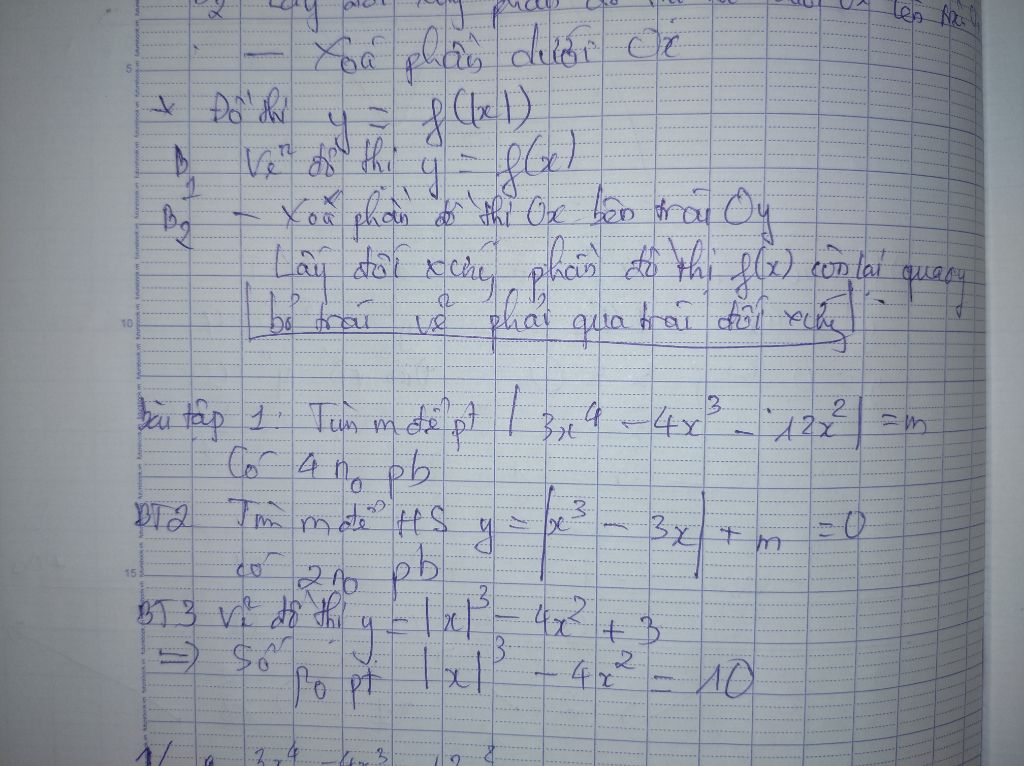 B2 Lấy đối xứng phần đồ thị
— Xoá phần dưới Ox
* Đồ thị y = f(|x|)
B1 Vẽ đồ thị y = f(x)
B2 — Xoá phần đồ thị Ox bên trái Oy
Lấy đối xứng phần đồ thị f(x) còn lại qua Oy
bỏ trái vẽ phải qua trái đối xứng
5
10
15
bài tập 1: Tìm m để pt |3x⁴ - 4x³ - 12x²| = m
Có 4 n₀ pb
BT2 Tìm m để HS y = |x³ - 3x| + m = 0
có 2n₀ pb
BT3 Vẽ đồ thị y = |x|³ - 4x² + 3
=> Số n₀ pt |x|³ - 4x² = 10